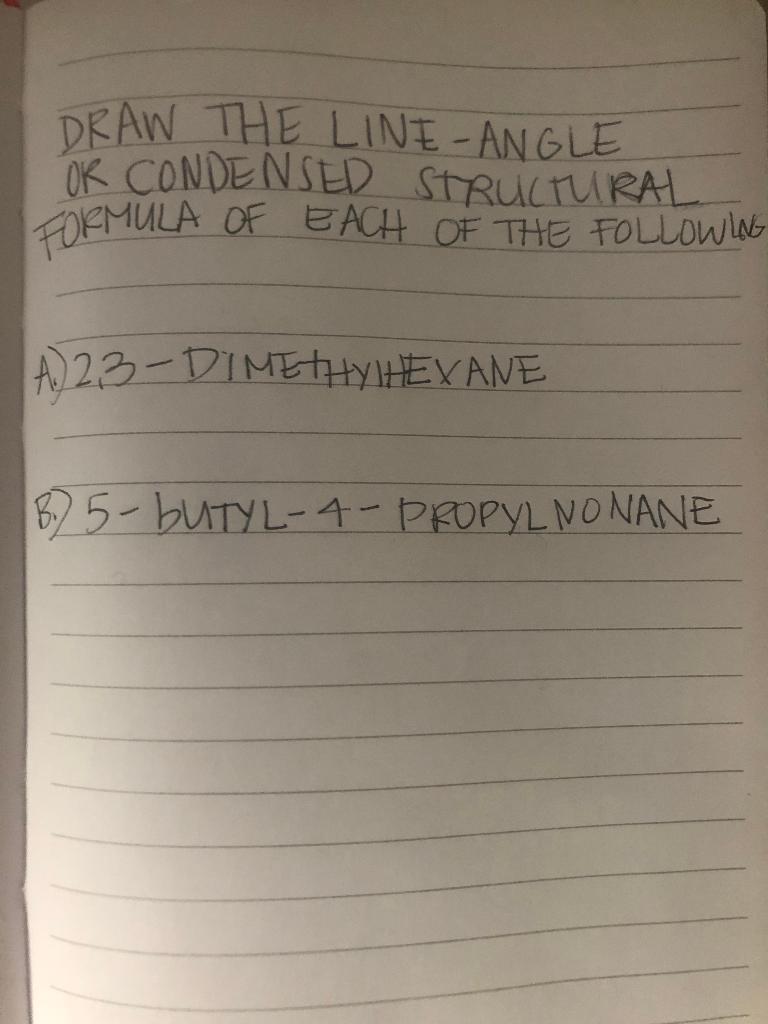 DRAW THE LINE-ANGLE
OR CONDENSED STRUCTURAL
FORMULA OF EACH OF THE FOLLOWING
A.) 2,3-DIMETHYlHEXANE
B.) 5-bUTYL-4-PROPYLNONANE